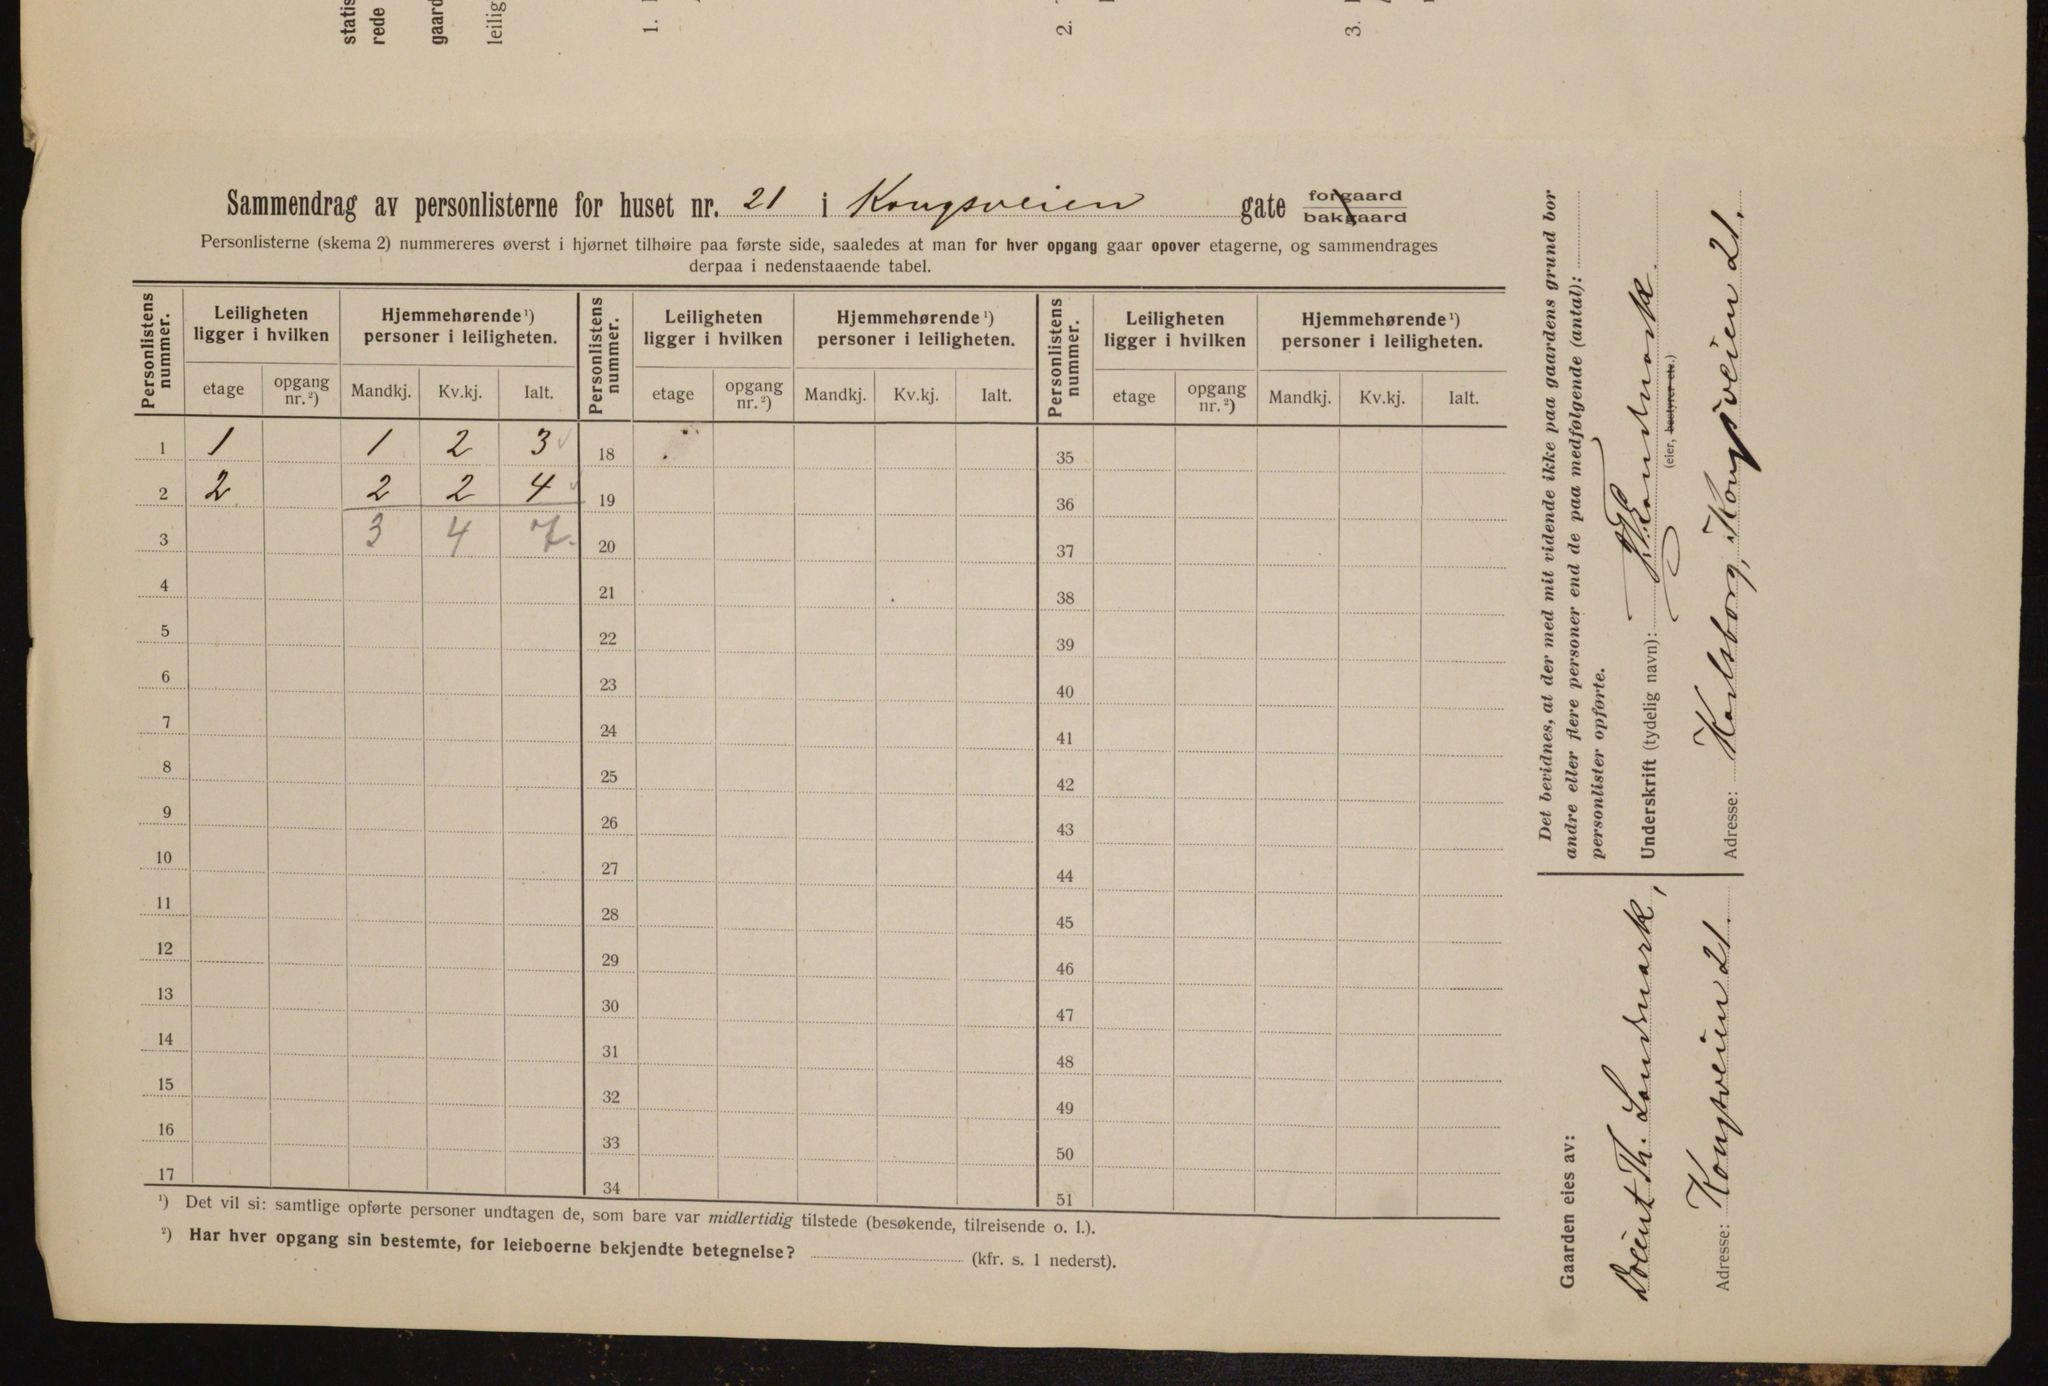 statis
rede
gaard
leilig
1.
2.
3.
Sammendrag av personlisterne for huset nr. 21 i Kongsveien gate forgaard
bakgaard
Personlisterne (skema 2) nummereres øverst i hjørnet tilhøire paa første side, saaledes at man for hver opgang gaar opover etagerne, og sammendrages
derpaa i nedenstaaende tabel.
Personlistens nummer. Leiligheten ligger i hvilken Hjemmehørende ¹) personer i leiligheten. Personlistens nummer. Leiligheten ligger i hvilken Hjemmehørende ¹) personer i leiligheten. Personlistens nummer. Leiligheten ligger i hvilken Hjemmehørende ¹) personer i leiligheten.
etage opgang nr. ²) Mandkj. Kv.kj. Ialt. etage opgang nr. ²) Mandkj. Kv.kj. Ialt. etage opgang nr. ²) Mandkj. Kv.kj. Ialt.
1 1 1 2 3 18 35
2 2 2 2 4 19 36
3 3 4 7. 20 37
4 21 38
5 22 39
6 23 40
7 24 41
8 25 42
9 26 43
10 27 44
11 28 45
12 29 46
13 30 47
14 31 48
15 32 49
16 33 50
17 34 51
¹) Det vil si: samtlige opførte personer undtagen de, som bare var midlertidig tilstede (besøkende, tilreisende o. l.).
²) Har hver opgang sin bestemte, for leieboerne bekjendte betegnelse? (kfr. s. 1 nederst).
Det bevidnes, at der med mit vidende ikke paa gaardens grund bor
andre eller flere personer end de paa medfølgende (antal):
personlister opførte.
Underskrift (tydelig navn): Th. Landmark.
(eier, bestyrer etc.)
Adresse: Karlsborg, Kongsveien 21.
Gaarden eies av:
Docent Th. Landmark,
Adresse: Kongsveien 21.